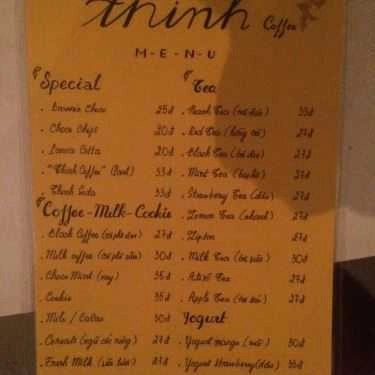 think
Coffee
M-E-N-U
Special
. Brownie Choco 25đ
. Choco Chips 20đ
. Lotta 20đ
. "Think Coffee" 33đ
. Think Soda 33đ
Coffee-Milk-Cookie
. Black Coffee (cà phê đen) 27đ
. Milk coffee (cà phê sữa) 30đ
. Choco Mint (xay) 35đ
. Cookie 35đ
. Milo / Cacao 30đ
. Cereals (ngũ cốc nóng) 27đ
. Fresh Milk 27đ
Tea
. Peach Tea (trà đào) 33đ
. Red Tea (hồng trà) 27đ
. Black Tea (trà đen) 27đ
. Mint Tea (bạc hà) 27đ
. Strawberry Tea (dâu) 27đ
. Lemon Tea (chanh) 27đ
. Lipton 27đ
. Milk Tea (trà sữa) 30đ
. Tea 27đ
. Apple Tea (trà táo) 27đ
Yogurt
. Yogurt 30đ
. Yogurt Strawberry (dâu) 35đ